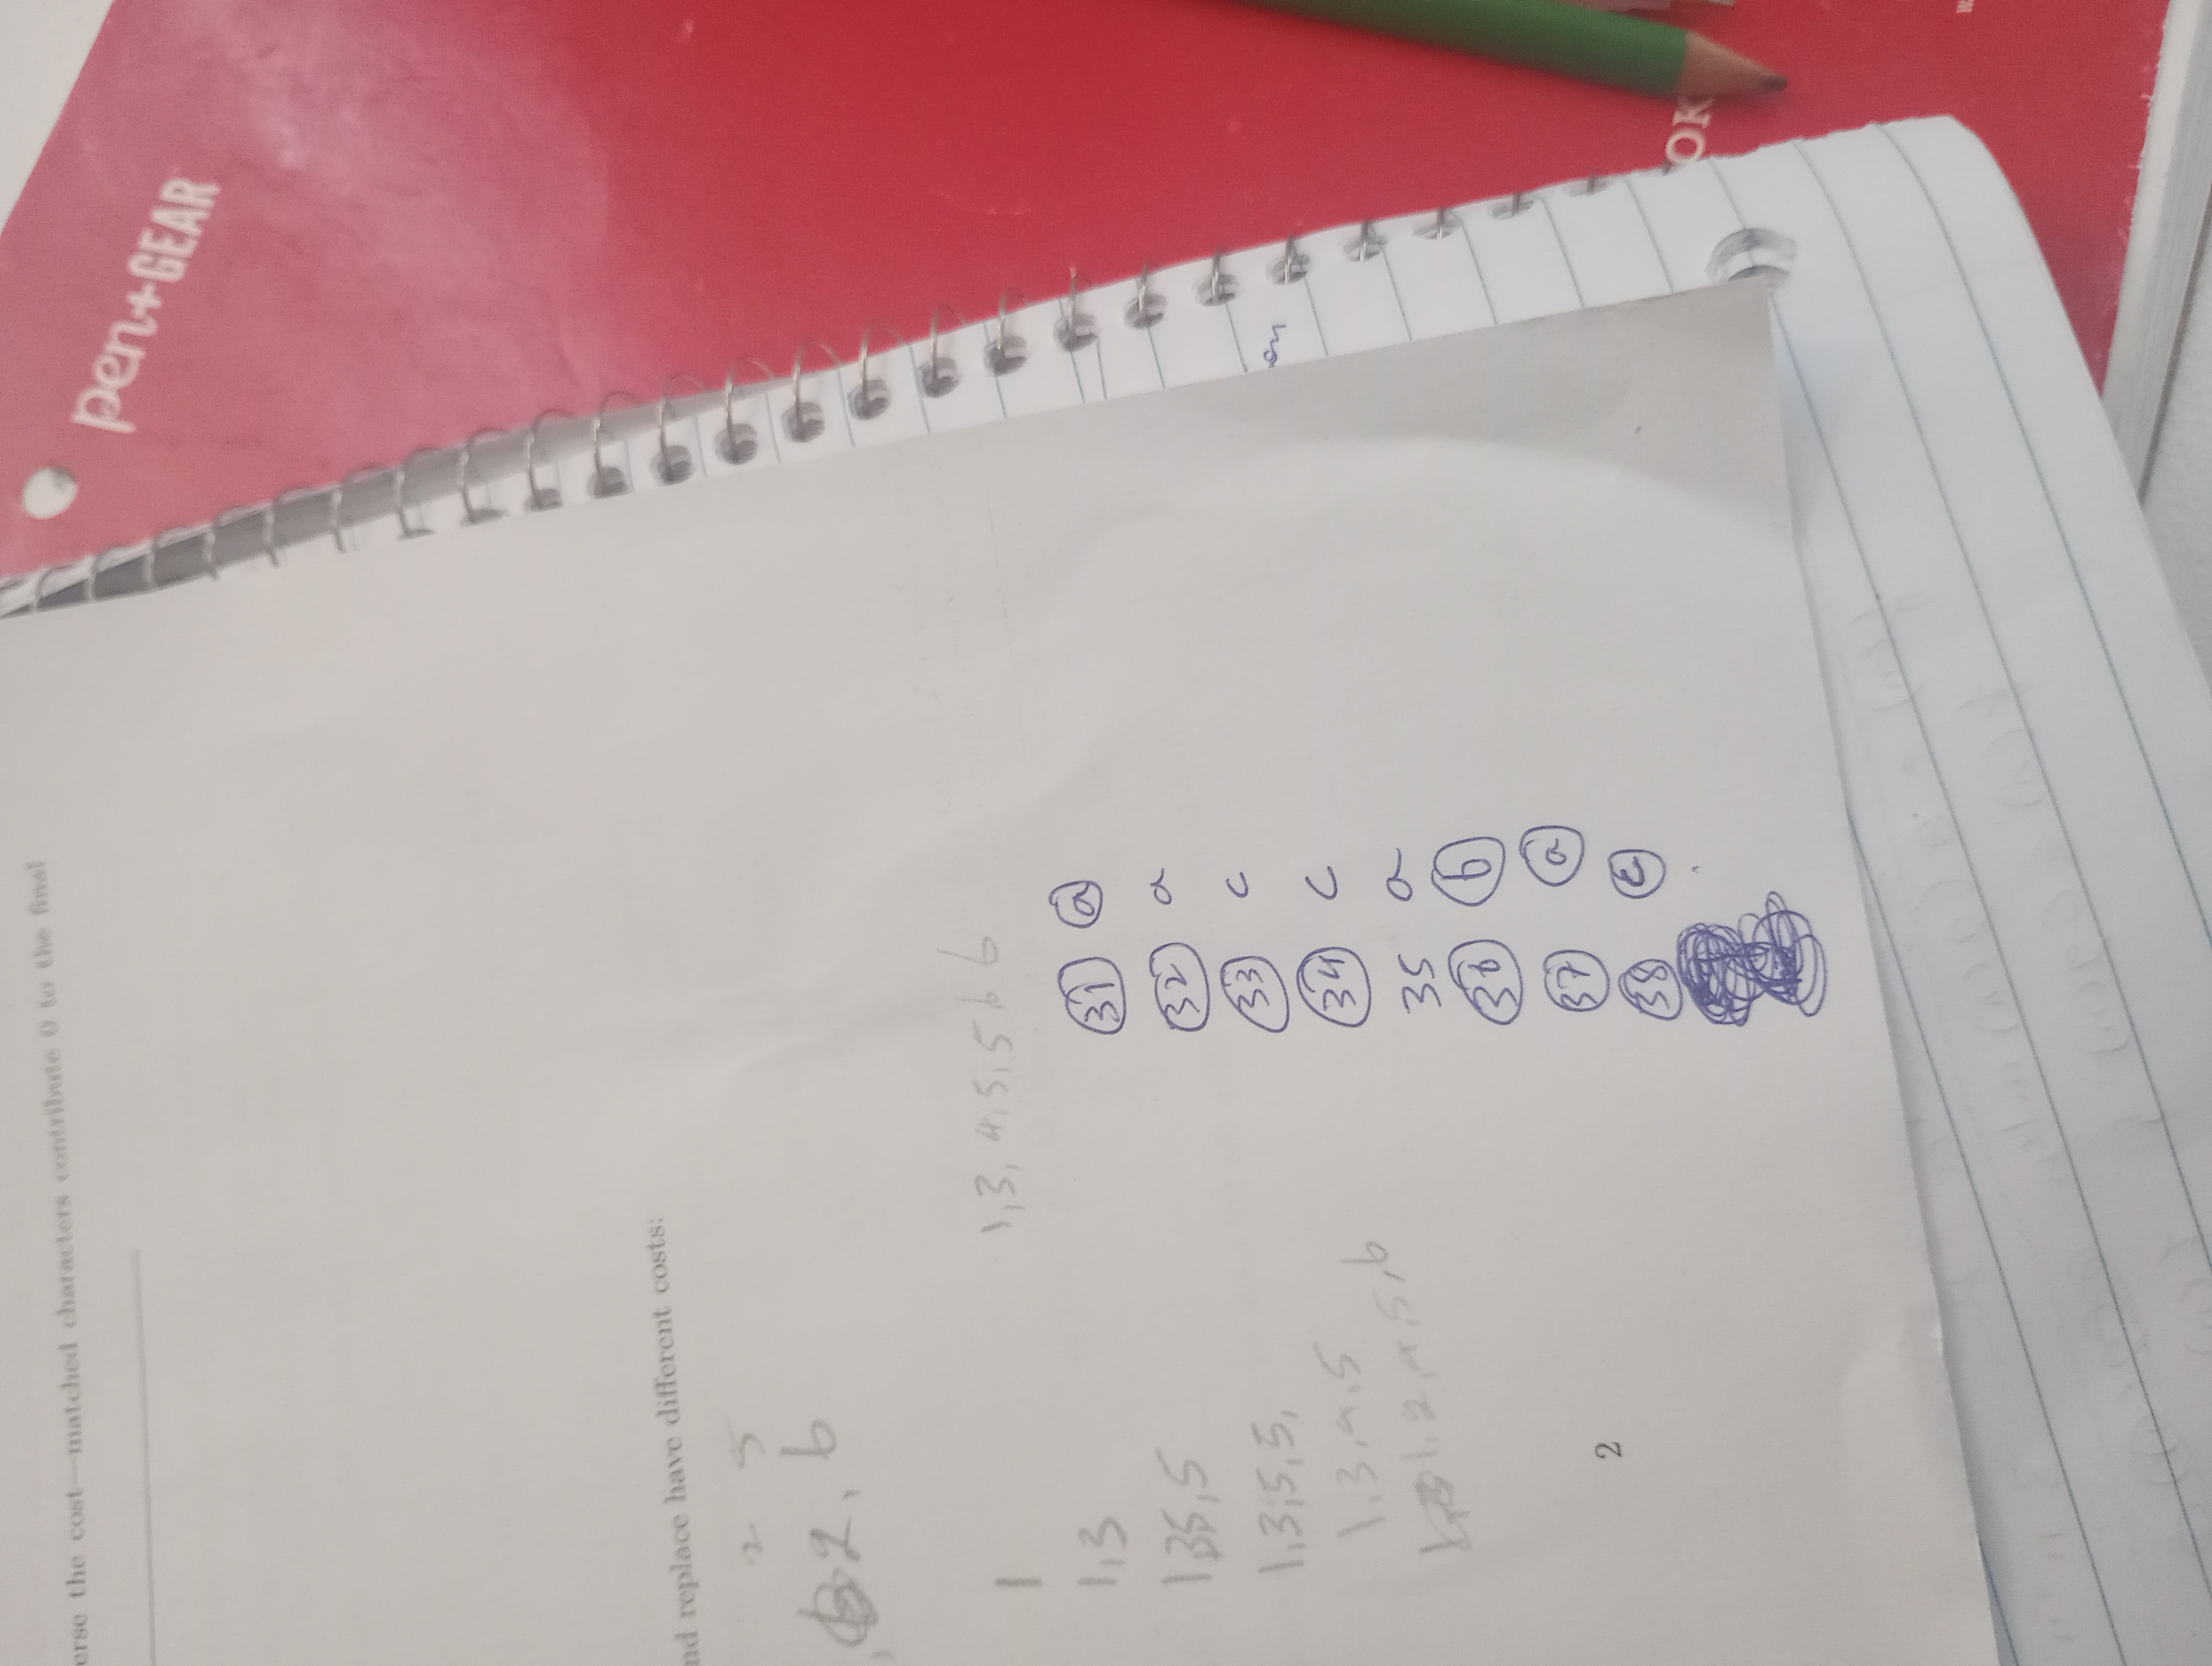 erse the cost—matched characters contribute 0 to the final
pen+GEAR
nd replace have different costs:
2 5
2, b
1
1,3,4,5,5,6 6
1,3
1,35,5
1,3,5,5,
1,3,4,5
1,2,4,5,6
31 a
32 a
33 c
34 c
35 a
36 b
37 a
38 c
2
on
OK